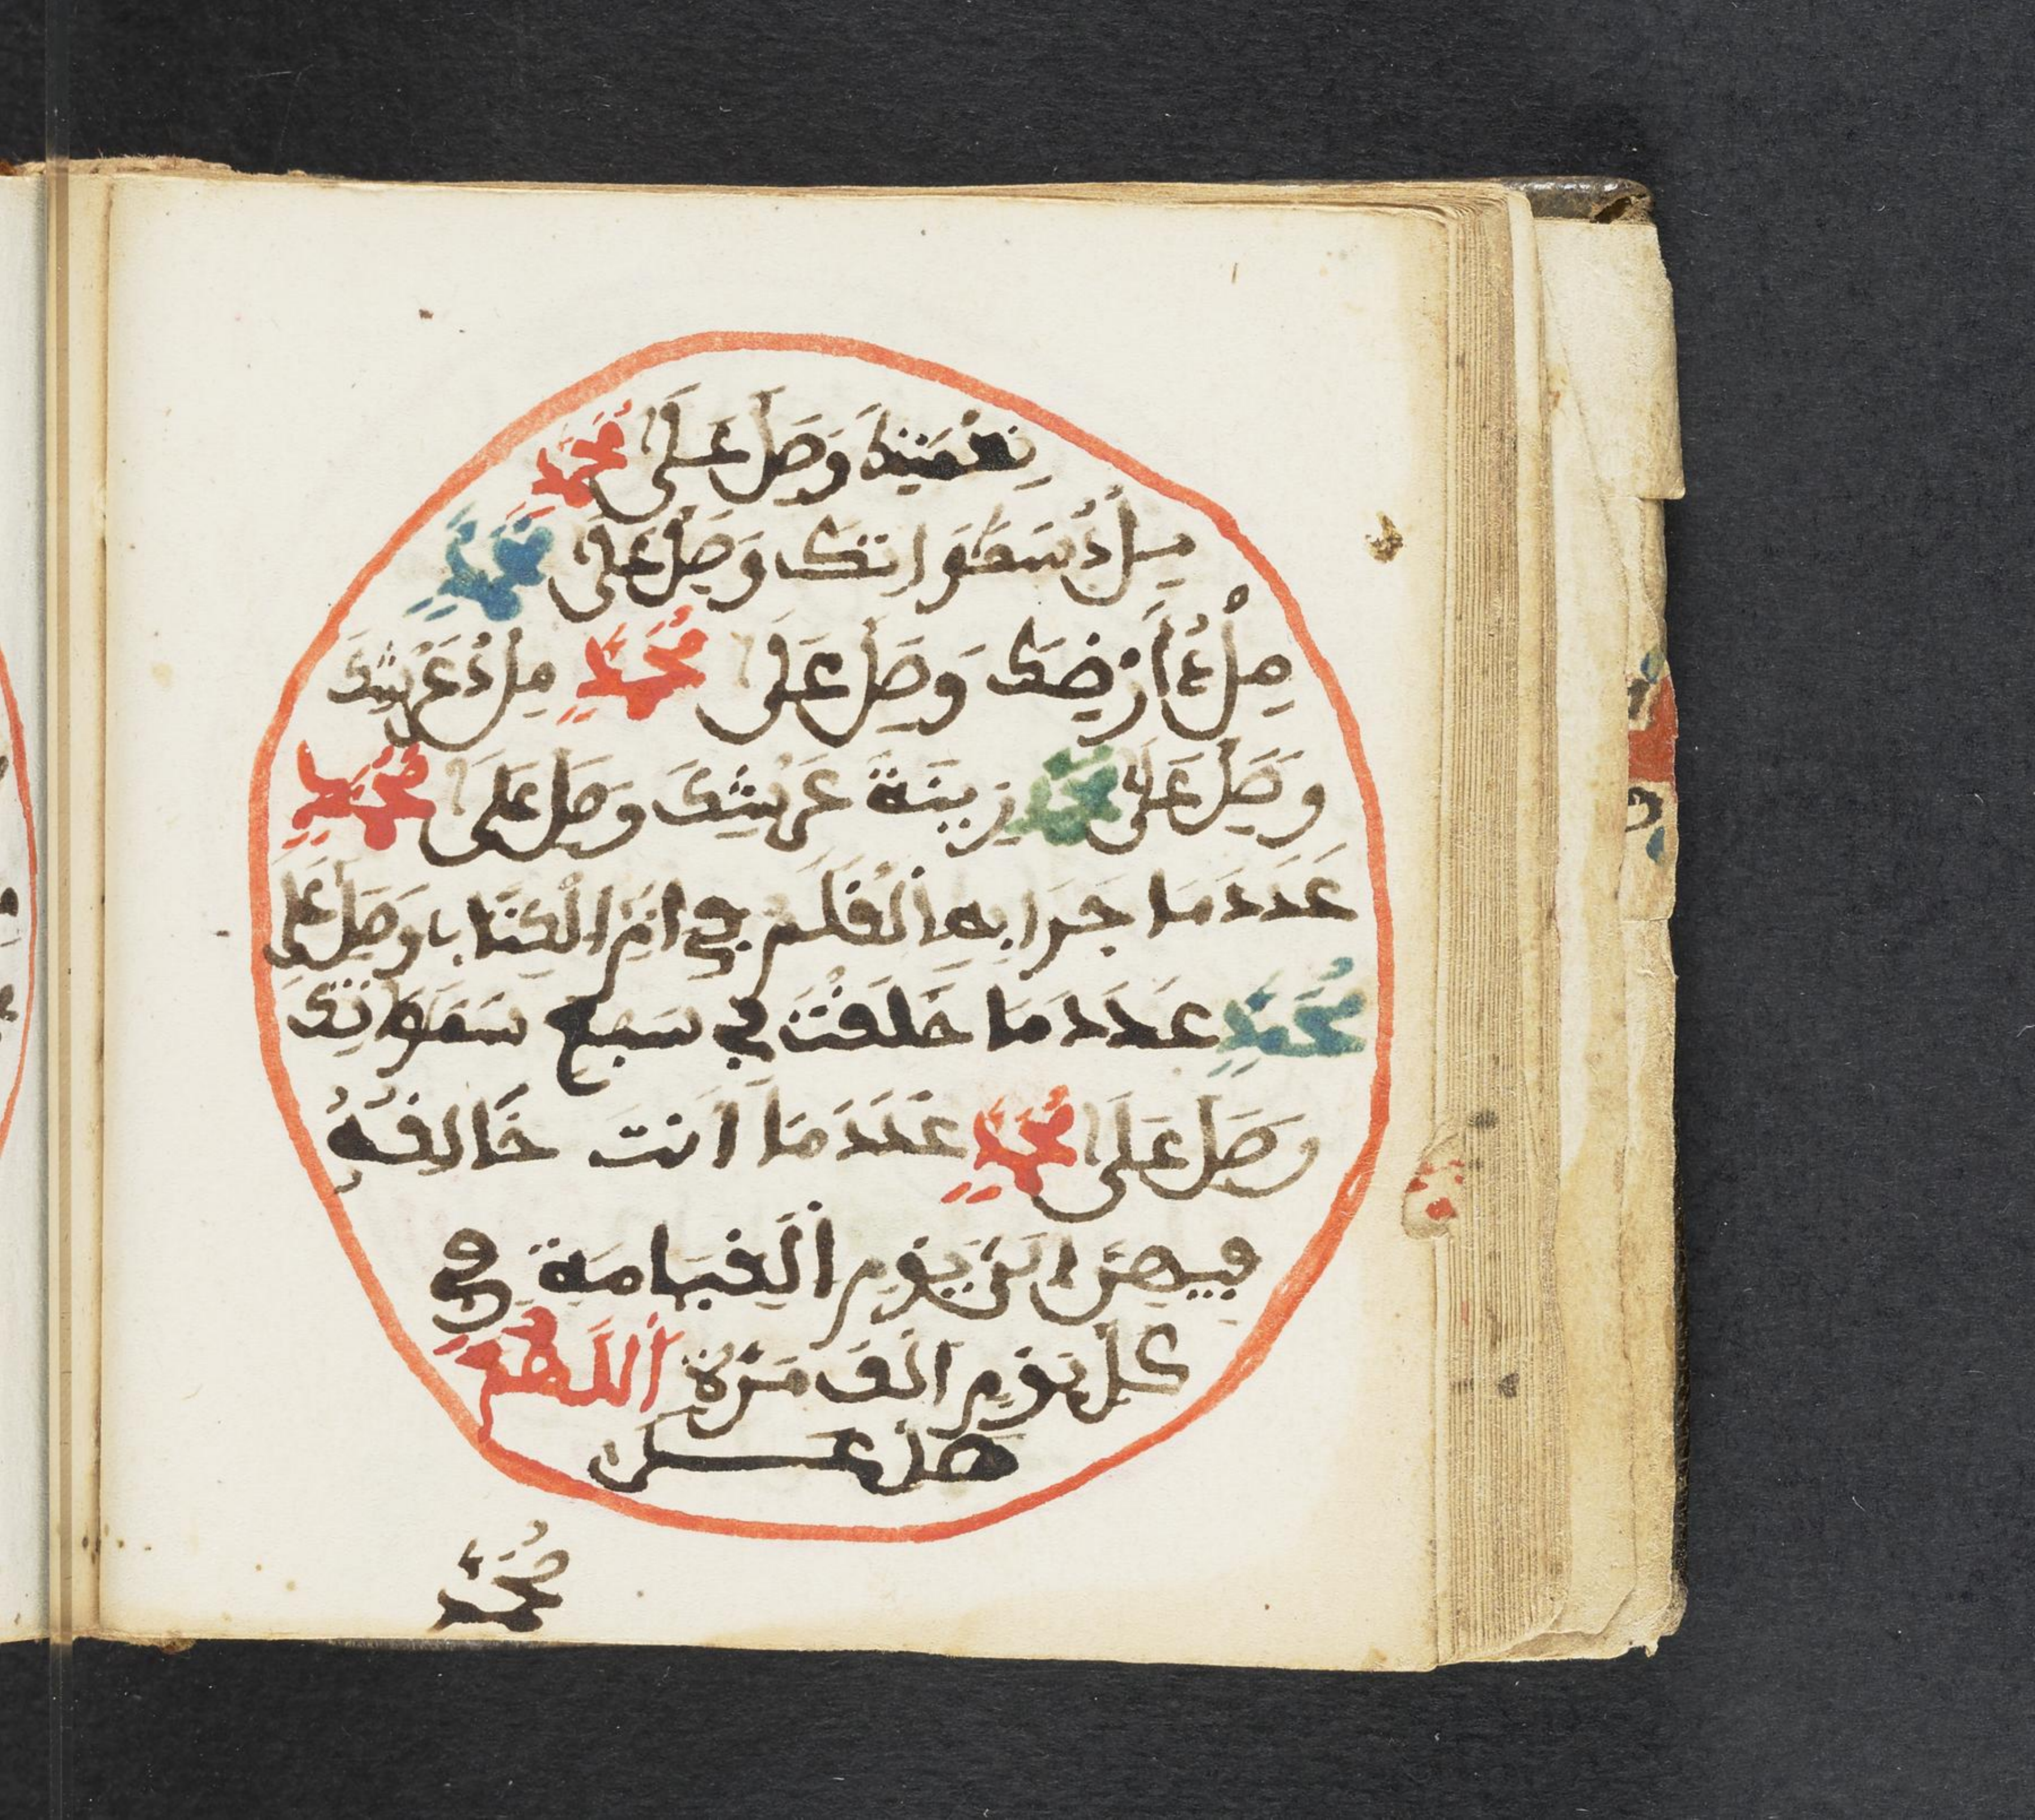 نِعْمَتِكَ وَصَلِّ عَلَى مُحَمَّدٍ
مِلْءُ سَمَوَاتِكَ وَصَلِّ عَلَى مُحَمَّدٍ
مِلْءُ أَرْضِكَ وَصَلِّ عَلَى مُحَمَّدٍ مِلْءُ عَرْشِكَ
وَصَلِّ عَلَى مُحَمَّدٍ زِينَةَ عَرْشِكَ وَصَلِّ عَلَى مُحَمَّدٍ
عَدَدَ مَا جَرَا بِهِ الْقَلَمُ فِي امِّ الْكِتَابِ وَصَلِّ عَلَى
مُحَمَّدٍ عَدَدَ مَا خَلَقْتَ فِي سَبْعِ سَمَوَاتِكَ
وَصَلِّ عَلَى مُحَمَّدٍ عَدَدَ مَا أَنْتَ خَالِقُهُ
فِيهِنَّ الَى يَوْمِ الْقِيَامَةِ فِي
كُلِّ يَوْمٍ أَلْفَ مَرَّةٍ اللَّهُمَّ
صَلِّ عَلَى
مُحَمَّدٍ